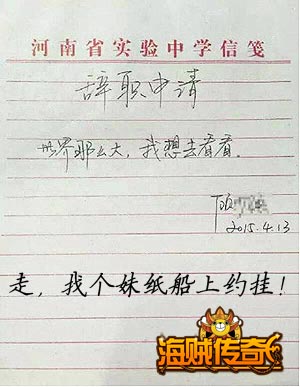 河南省实验中学信笺
辞职申请
世界那么大，我想去看看。
顾
2015.4.13
走，找个妹纸船上约挂！
海贼传奇